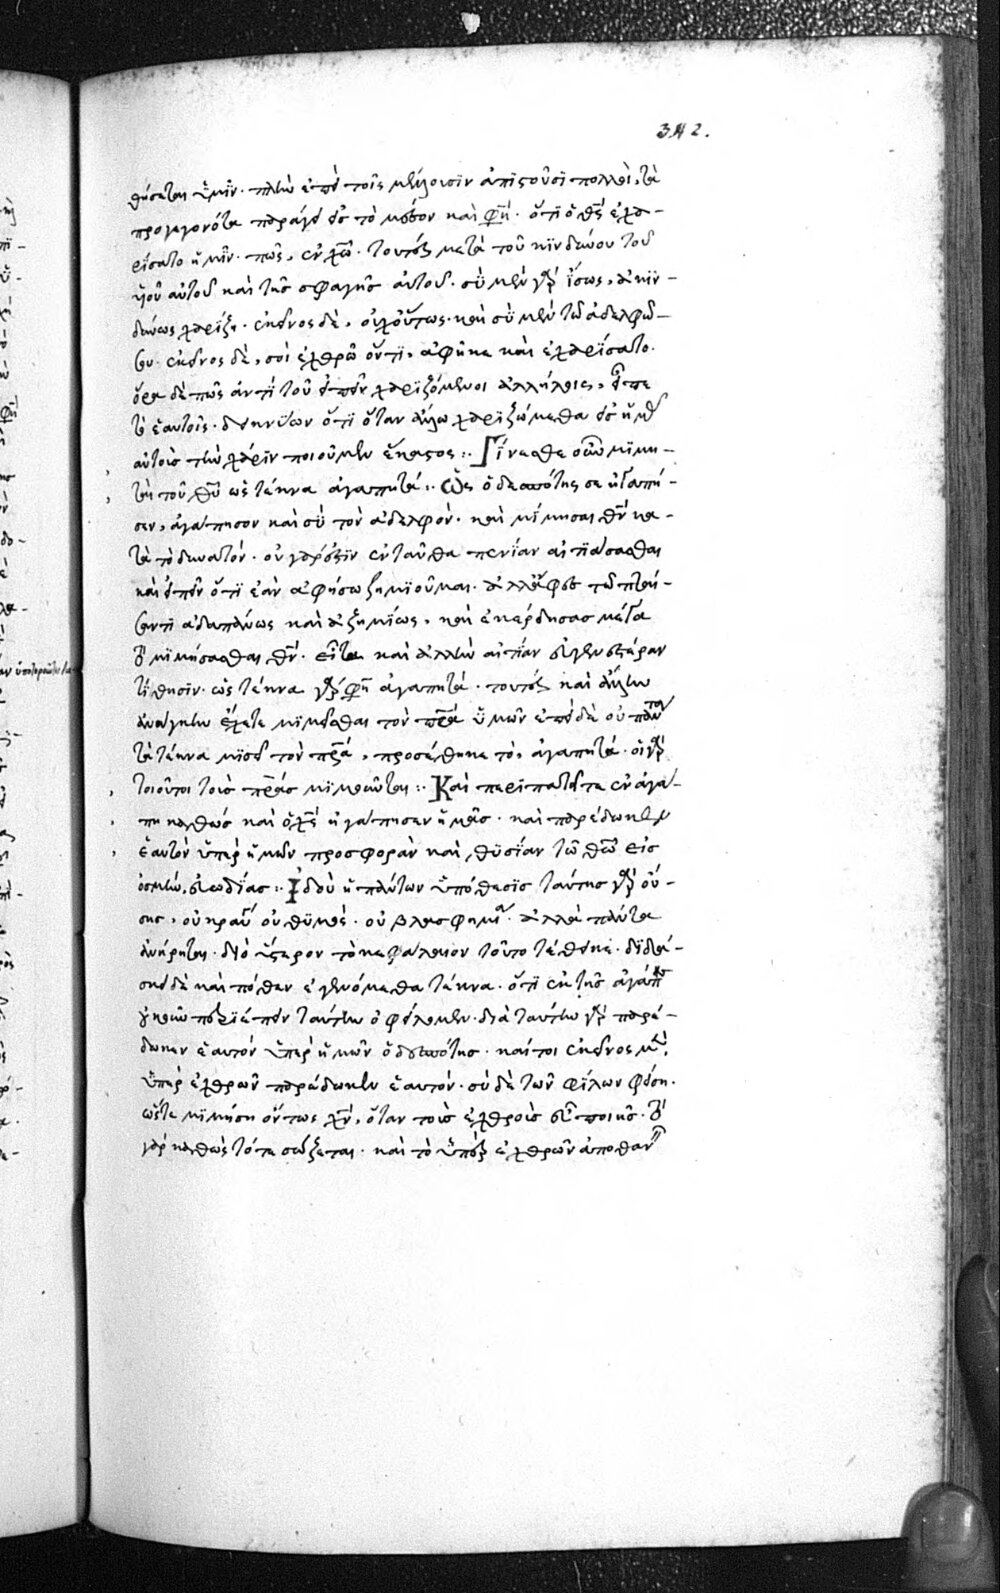 θήσεται ὑμῖν. πλὴν ἐπεὶ τοῖς μέλλουσιν ἀπιστοῦσι πολλοὶ, τὰ
προγεγονότα παράγει εἰς τὸ μέσον καὶ φησί. ὅτι ὁ θς ἐχα-
ρίσατο ἡμῖν. πῶς, ἐν χω. τουτέστι μετὰ τοῦ κινδύνου τοῦ
υἱοῦ αὐτοῦ καὶ τῆς σφαγῆς αὐτοῦ. σὺ μὲν γὰρ ἴσως, ἀκιν-
δύνως χαρίζῃ. ἐκεῖνος δὲ, οὐχ οὕτως. καὶ σὺ μὲν τῶ ἀδελφῶ-
σου. ἐκεῖνος δὲ, σοὶ ἐχθρῶ ὄντι, ἀφῆκε καὶ ἐχαρίσατο.
ὅρα δὲ πῶς ἀντὶ τοῦ εἰπεῖν χαριζόμενοι ἀλλήλοις, εἶπε
τὸ ἑαυτοῖς. δεικνύων ὅτι ὅταν ἄλλω χαριζώμεθα εἰς ἡμᾶς
αὐτοὺς τὴν χάριν ποιοῦμεν ἕκαστος :. Γίνεσθε οὖν μιμη-
ταὶ τοῦ θυ ὡς τέκνα ἀγαπητά :. Ὡς ὁ δεσπότης σε ἠγάπη-
σεν, ἀγάπησον καὶ σὺ τὸν ἀδελφόν. καὶ μίμησαι θν κα-
τὰ τὸ δυνατόν. οὐ γάρ ἐστιν ἐνταῦθα πενίαν αἰτιάσασθαι
καὶ εἰπεῖν ὅτι ἐὰν ἀφήσω ζημιοῦμαι. ἀλλ' ἄφες τῶ πταί-
σαντι ἀδαπάνως καὶ ἀζημίως, καὶ ἐκέρδησας μέγα
τὸ μιμήσασθαι θν. εἶτα καὶ ἄλλην αἰτίαν εὐγενεστέραν
τίθησιν. ὡς τέκνα γάρ φησι ἀγαπητά. τουτέστι καὶ ἄλλην
ἀνάγκην ἔχετε μιμεῖσθαι τὸν πρα ὑμῶν ἐπεὶ δὲ οὐ πάντα
τὰ τέκνα μιμεῖται τὸν πρα, προσέθηκε τὸ, ἀγαπητά. οἱ γὰρ
τοιοῦτοι τοὺς πρας μιμοῦνται :. Καὶ περιπατεῖτε ἐν ἀγά-
πη καθὼς καὶ ὁ χς ἠγάπησεν ἡμᾶς. καὶ παρέδωκεν
ἑαυτὸν ὑπὲρ ἡμῶν προσφορὰν καὶ θυσίαν τῶ θω εἰς
ὀσμὴν εὐωδίας :. Ἰδοὺ ἡ πάντων ὑπόθεσις ταύτης γὰρ οὔ-
σης, οὐ κραυγὴ οὐ θυμός. οὐ βλασφημία. ἀλλὰ πάντα
ἀνήρηται. διὸ ὕστερον τὸ κεφάλαιον τοῦτο τέθεικε. διδά-
σκει δὲ καὶ πόθεν ἐγενόμεθα τέκνα. ὅτι ἐκ τῆς ἀγάπης
ἡκοῦν περιέπειν ταύτην ὀφείλομεν. διὰ ταύτην γὰρ παρέ-
δωκεν ἑαυτὸν ὑπὲρ ἡμῶν ὁ δεσπότης. καίτοι ἐκεῖνος μὲν,
ὑπὲρ ἐχθρῶν παρέδωκεν ἑαυτόν. σὺ δὲ τῶν φίλων φείση.
ὥστε μιμήση ὄντως χν, ὅταν τοὺς ἐχθροὺς εὖ ποιῆς. τὸ
γὰρ καθὼς τότε σώζεται. καὶ τὸ ὑπὲρ ἐχθρῶν ἀποθανεῖν